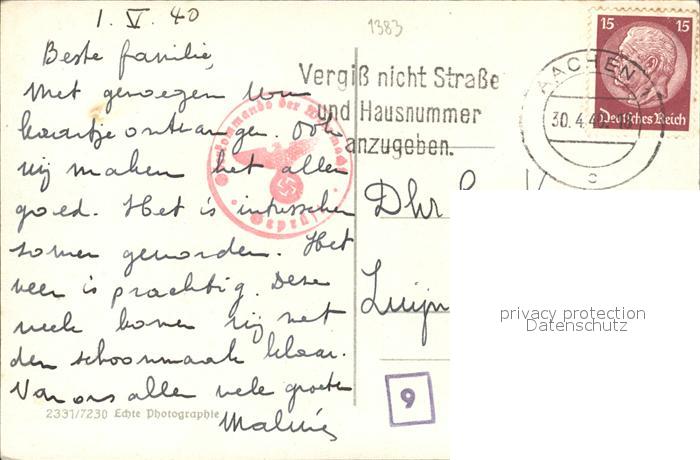 1. V. 40
1383
Beste familie,
Met genoegen Uw
kaartje ontvangen. Ook
wij maken het allen
goed. Het is intusschen
zomer geworden. Het
weer is prachtig. Deze
week komen wij met
den schoonmaak klaar.
Van ons allen vele groeten
2331/7230 Echte Photographie
Vergiß nicht Straße
und Hausnummer
anzugeben.
Oberkommando der Wehrmacht
Geprüft
AACHEN 1
30.4.40
c
15 15
Deutsches Reich
Dhr
9
privacy protection
Datenschutz